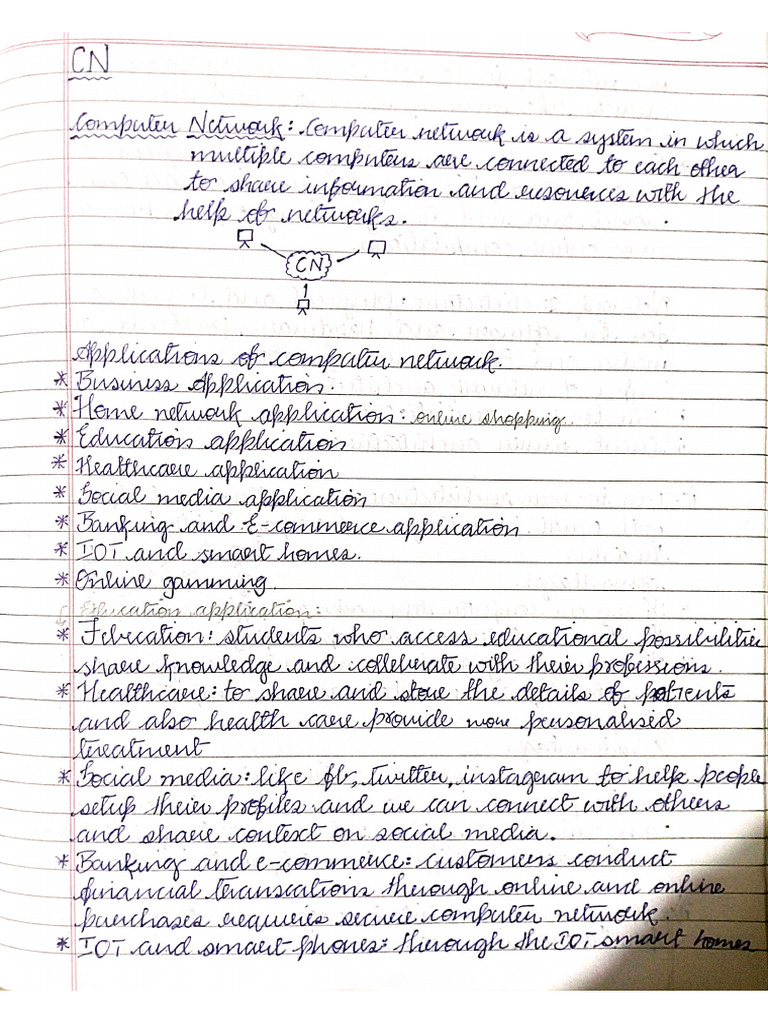 CN
Computer Network: Computer network is a system in which
multiple computers are connected to each other
to share information and resources with the
help of networks.
CN
Applications of computer network.
* Business Application.
* Home network application: online shopping.
* Education application
* Healthcare application
* Social media application
* Banking and E-commerce application
* IOT and smart homes.
* Online gamming.
Education application:
* students who access educational possibilities
share knowledge and colleberate with their professions.
* Healthcare: to share and store the details of patients
and also health care provide more personalised
treatment
* Social media: like fb, twitter, instagram to help people
setup their profiles and we can connect with others
and share context on social media.
* Banking and e-commerce: customers conduct
financial transcations through online and online
purchases requires secure computer network.
* IOT and smart phones: through the IOT smart homes